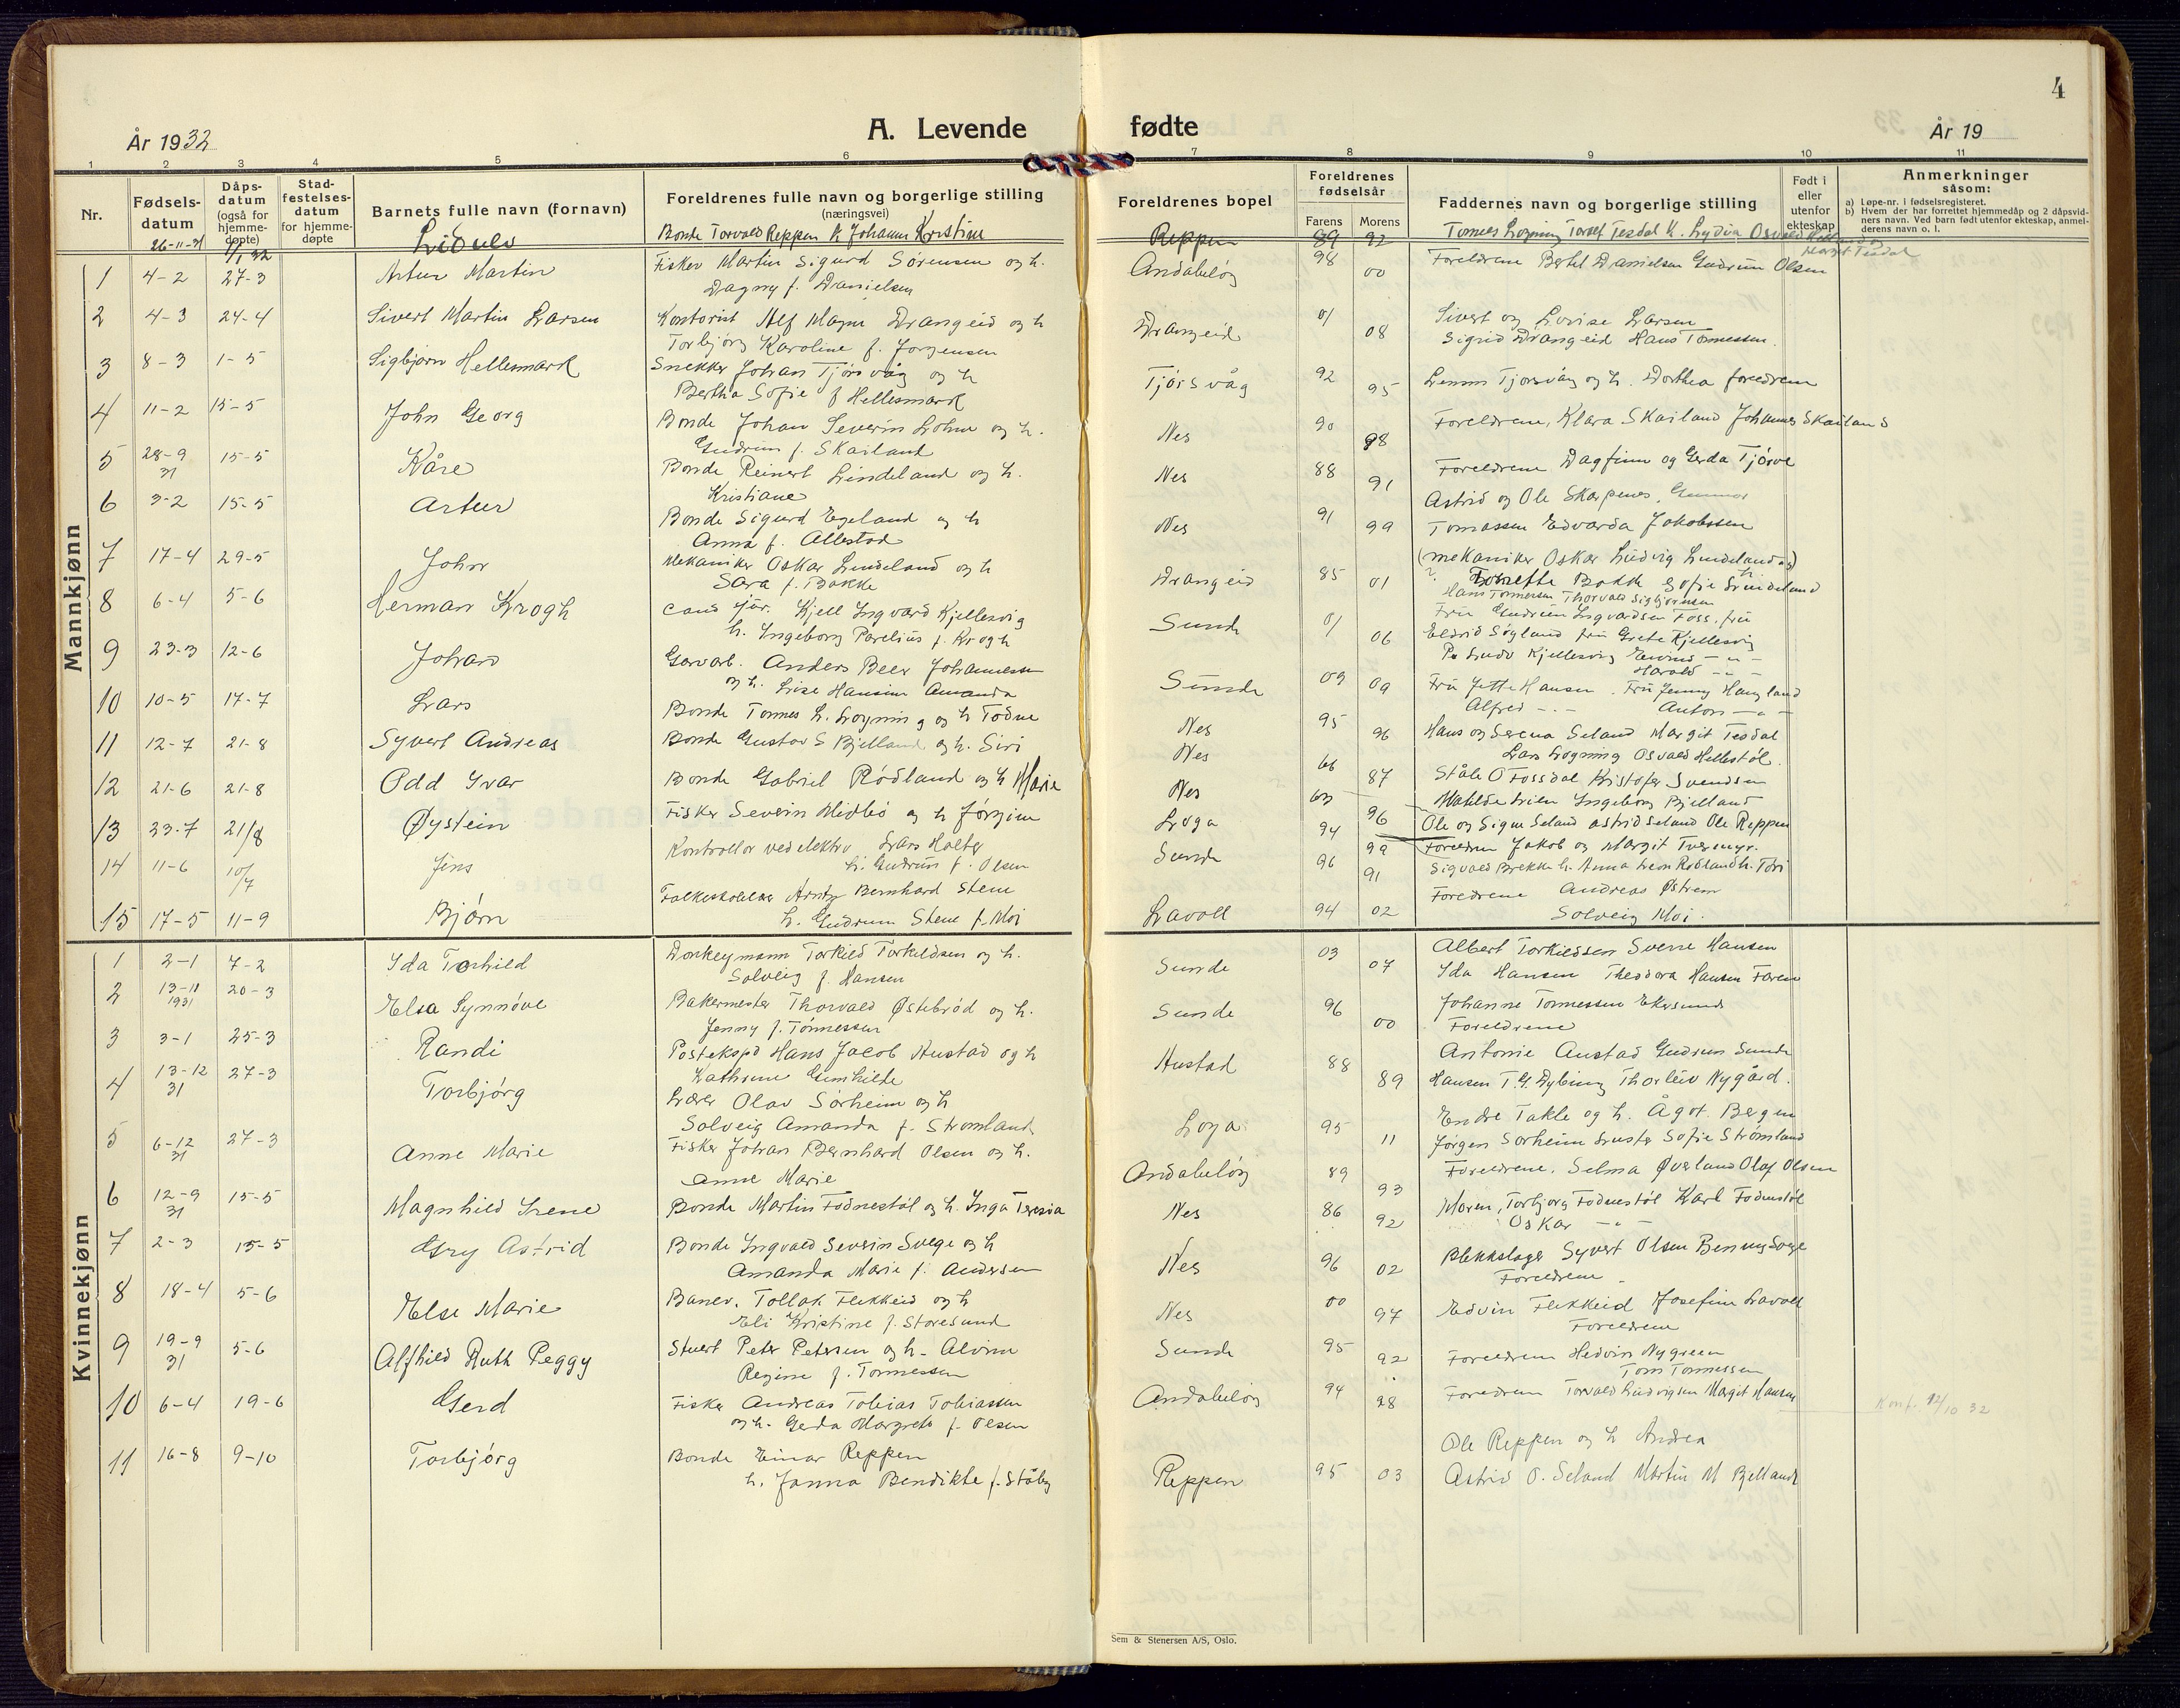 4
År 1932
A. Levende
fødte
År 19
1 2 3 4 5 6 7 8 9 10 11
Nr.
Fødsels-
datum
Dåps-
datum
(også for
hjemme-
døpte)
Stad-
festelses-
datum
for hjemme-
døpte
Barnets fulle navn (fornavn)
Foreldrenes fulle navn og borgerlige stilling
(næringsvei)
Foreldrenes bopel
Foreldrenes
fødselsår
Farens Morens
Faddernes navn og borgerlige stilling
Født i
eller
utenfor
ekteskap
Anmerkninger
såsom:
a) Løpe-nr. i fødselsregisteret.
b) Hvem der har forrettet hjemmedåp og 2 dåpsvid-
ners navn. Ved barn født utenfor ekteskap, anmel-
derens navn o. l.
26-11-31 Bonde Torvald Reppen Johanne Kristine Reppen 89 92
Mannkjønn
1 4-2 27-3 Artur Martin Fisker Martin Sigurd Sørensen og h. Andabeløy 98 00 Foreldrene Bertel Danielsen Gudrun Olsen
Dagny f. Danielsen
2 4-3 24-4 Sivert Martin Larsen Kontorist Alf Magn Drangeid og h Drangeid 01 08 Sivert og Lovise Larsen
Torbjørg Karoline f. Jørgensen Sigrid Drangeid Hans Tønnessen.
3 8-3 1-5 Sigbjørn Hellesmark Snekker Johan Tjørsvåg og h Tjørsvåg 92 95 Tjorsvåg og h. Dorthea foreldrene
Bertha Sofie f Hellesmark
4 11-2 15-5 John Georg Bonde Johan Severin og h. Nes 90 98 Foreldrene, Klara Skailand Johannes Skailand
Gudrun f. Skailand
5 28-9 31 15-5 Kåre Bonde Reinert Lindeland og h. Nes 88 91 Foreldrene Dagfinn og Gerda Tjørve
Kristiane
6 3-2 15-5 Artur Bonde Sigurd Egeland og h Nes 91 99 Astrid og Ole Skarpenes, Gunnar
Anna f. Allestad Tomassen Edvarda Jakobssen
7 17-4 29-5 John Mekaniker Oskar Lindeland og h Drangeid 85 01 (mekaniker Oskar Ludvig Lindeland og)
Sara f. Bakke Sofie Lindeland
Hans Tønnersen Thorvald Sigbjørnsen
8 6-4 5-6 Herman Krogh cand jur. Kjell Ingvard Kjellesvig Sunde 01 06 Fru Gudrun Ingvardsen Foss, fru
h. Ingeborg Parelius f. Krogh Eldrid Søyland fru Grete Kjellesvig
9 23-3 12-6 Johan Garvarb. Anders Beer Johannessen Sunde 09 09 Fru Jette Hansen. Fru Jenny Haugland
og h. Lise Hansine Amanda Alfred -"- Anton -"-
10 10-5 17-7 Lars Bonde Tønnes L. Løyning og h Todne Nes 95 96 Hans og Serena Seland Margit Tesdal
Lars Løgning Osvald Hellestøl.
11 12-7 21-8 Syvert Andreas Bonde Gustav S Bjelland og h. Siri Nes 87 Ståle O Fossdal Kristofer Svendsen
Ingeborg Bjelland
12 21-6 21-8 Odd Ivar Bonde Gabriel Rødland og h Marie Nes 96 Ole og Signe Seland Astrid Seland Ole Reppen
13 23-7 21/8 Øystein Fisker Severin Midbø og h Jørgine Loga 94 99 Foreldren Jakob og Margit
14 11-6 10/7 Jens Kontrollør ved elektr Lars Holter Sunde 96 91
h. Gudrun f. Olsen
15 17-5 11-9 Bjørn Folkeskolelær Arntz Bernhard Stene Lavoll 94 02 Foreldrene Andreas Østrem
h. Gudrun Stene f. Moi Solveig Moi.
Kvinnekjønn
1 2-1 7-2 Ida Torhild Donkeymann Torkild Torkildsen og h. Sunde 03 07 Albert Torkildsen Sverre Hansen
Solveig f. Hansen Ida Hansen Theodora Hansen
2 13-11 1931 20-3 Elsa Synnøve Bakermester Thorvald Østebrød og h. Sunde 96 00 Johanne Tønnessen Ekersund
Jenny f. Tønnessen Foreldrene
3 3-1 25-3 Randi Postekspd Hans Jacob Austad og h Austad 88 89 Antonie Austad Gudrun Sunde
Kathrine Gunhilde Hansen T. G. Dybing Thorleiv Nygård.
4 13-12 31 27-3 Torbjørg Lærer Olav Sørheim og h Loga 95 11 Endre Takle og h. Ågot. Bergen
Solveig Amanda f. Strømland Jørgen Sørheim Luster Sofie Strømland
5 6-12 31 27-3 Anne Marie Fisker Johan Bernhard Olsen og h. Andabeløy 89 93 Foreldrene. Selma Øverland Olaf Olsen
Anne Marie
6 12-9 31 15-5 Magnhild Irene Bonde Martin Fodnestøl og h. Inga Teresia Nes 86 92 Maren, Torbjørg Fodnestøl Karl Fodnestøl
Oskar -"-
7 2-3 15-5 Gry Astrid Bonde Ingvald Severin Svege og h Nes 96 02 Blikkslager Syvert Olsen Benny Svege
Amanda Marie f. Andersen Foreldrene
8 18-4 5-6 Else Marie Banev. Tollak Flikkeid og h Nes 00 97 Edvin Flikkeid Josefine Lavoll
Eli Kristine f. Storesund Foreldrene
9 19-9 31 5-6 Alfhild Ruth Peggy Stuert Peter Petersen og h. Alvine Sunde 95 92 Foreldrene Hedvin Nygreen
Regine f. Tønnessen Tom Tønnessen
10 6-4 19-6 Gerd Fisker Andreas Tobias Tobiassen Andabeløy 94 98 Foreldrene Torvald Ludvigsen Margit Hansen
og h. Gerda Margrete f. Olsen Konf. 12/10 32
11 16-8 9-10 Torbjørg Bonde Einar Reppen Reppen 95 03 Ole Reppen og h Andrea
h. Janna Bendikte f. Støby Astrid O. Seland Martin M Bjelland
Sem & Stenersen A/S, Oslo.